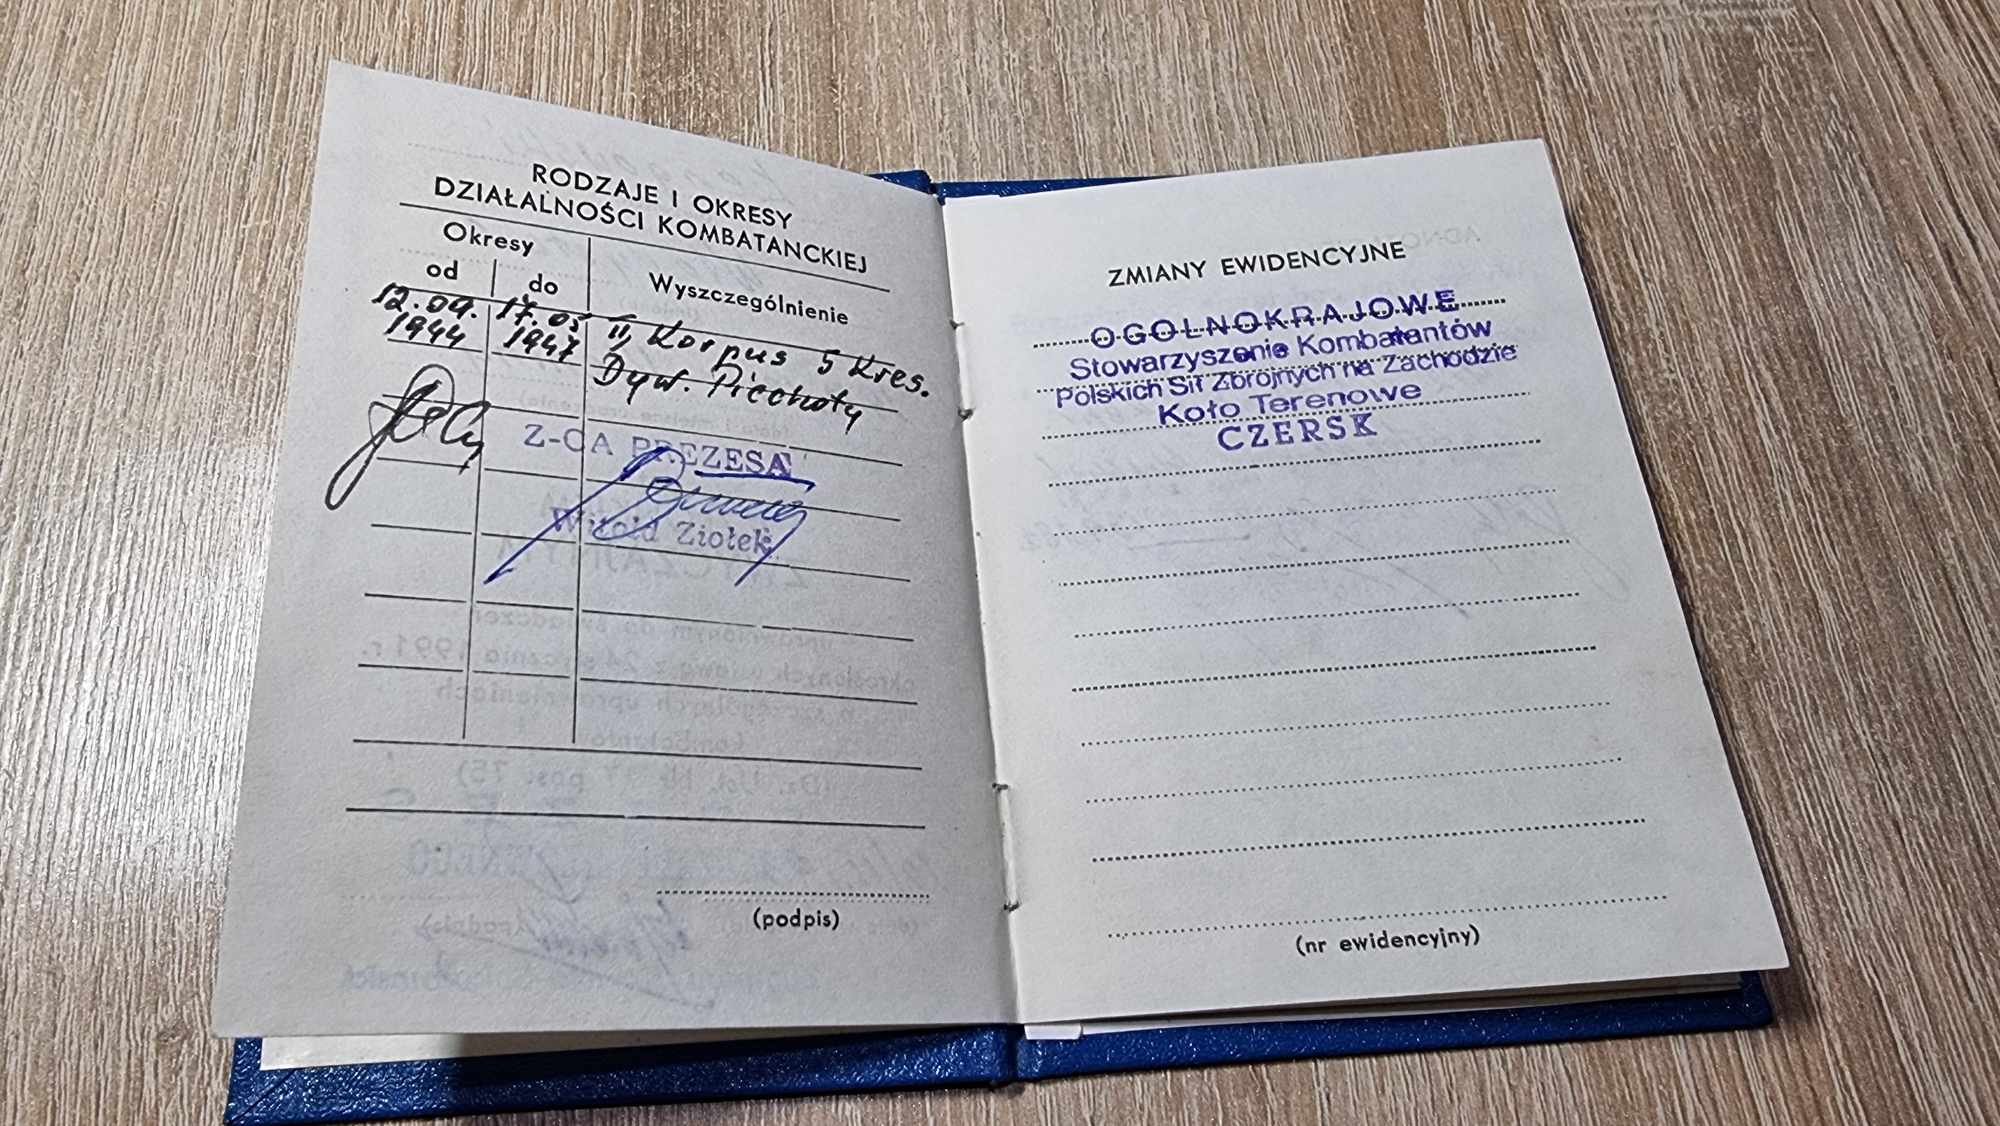 RODZAJE I OKRESY
DZIAŁALNOŚCI KOMBATANCKIEJ
Okresy
od
do
Wyszczególnienie
12.09.
1944
17.05
1947
II Korpus 5 Kres.
Dyw. Piechoty
Z-CA PREZESA
Witold Ziołek
(podpis)
ZMIANY EWIDENCYJNE
OGOLNOKRAJOWE
Stowarzyszenie Kombatantów
Polskich Sił Zbrojnych na Zachodzie
Koło Terenowe
CZERSK
(nr ewidencyjny)